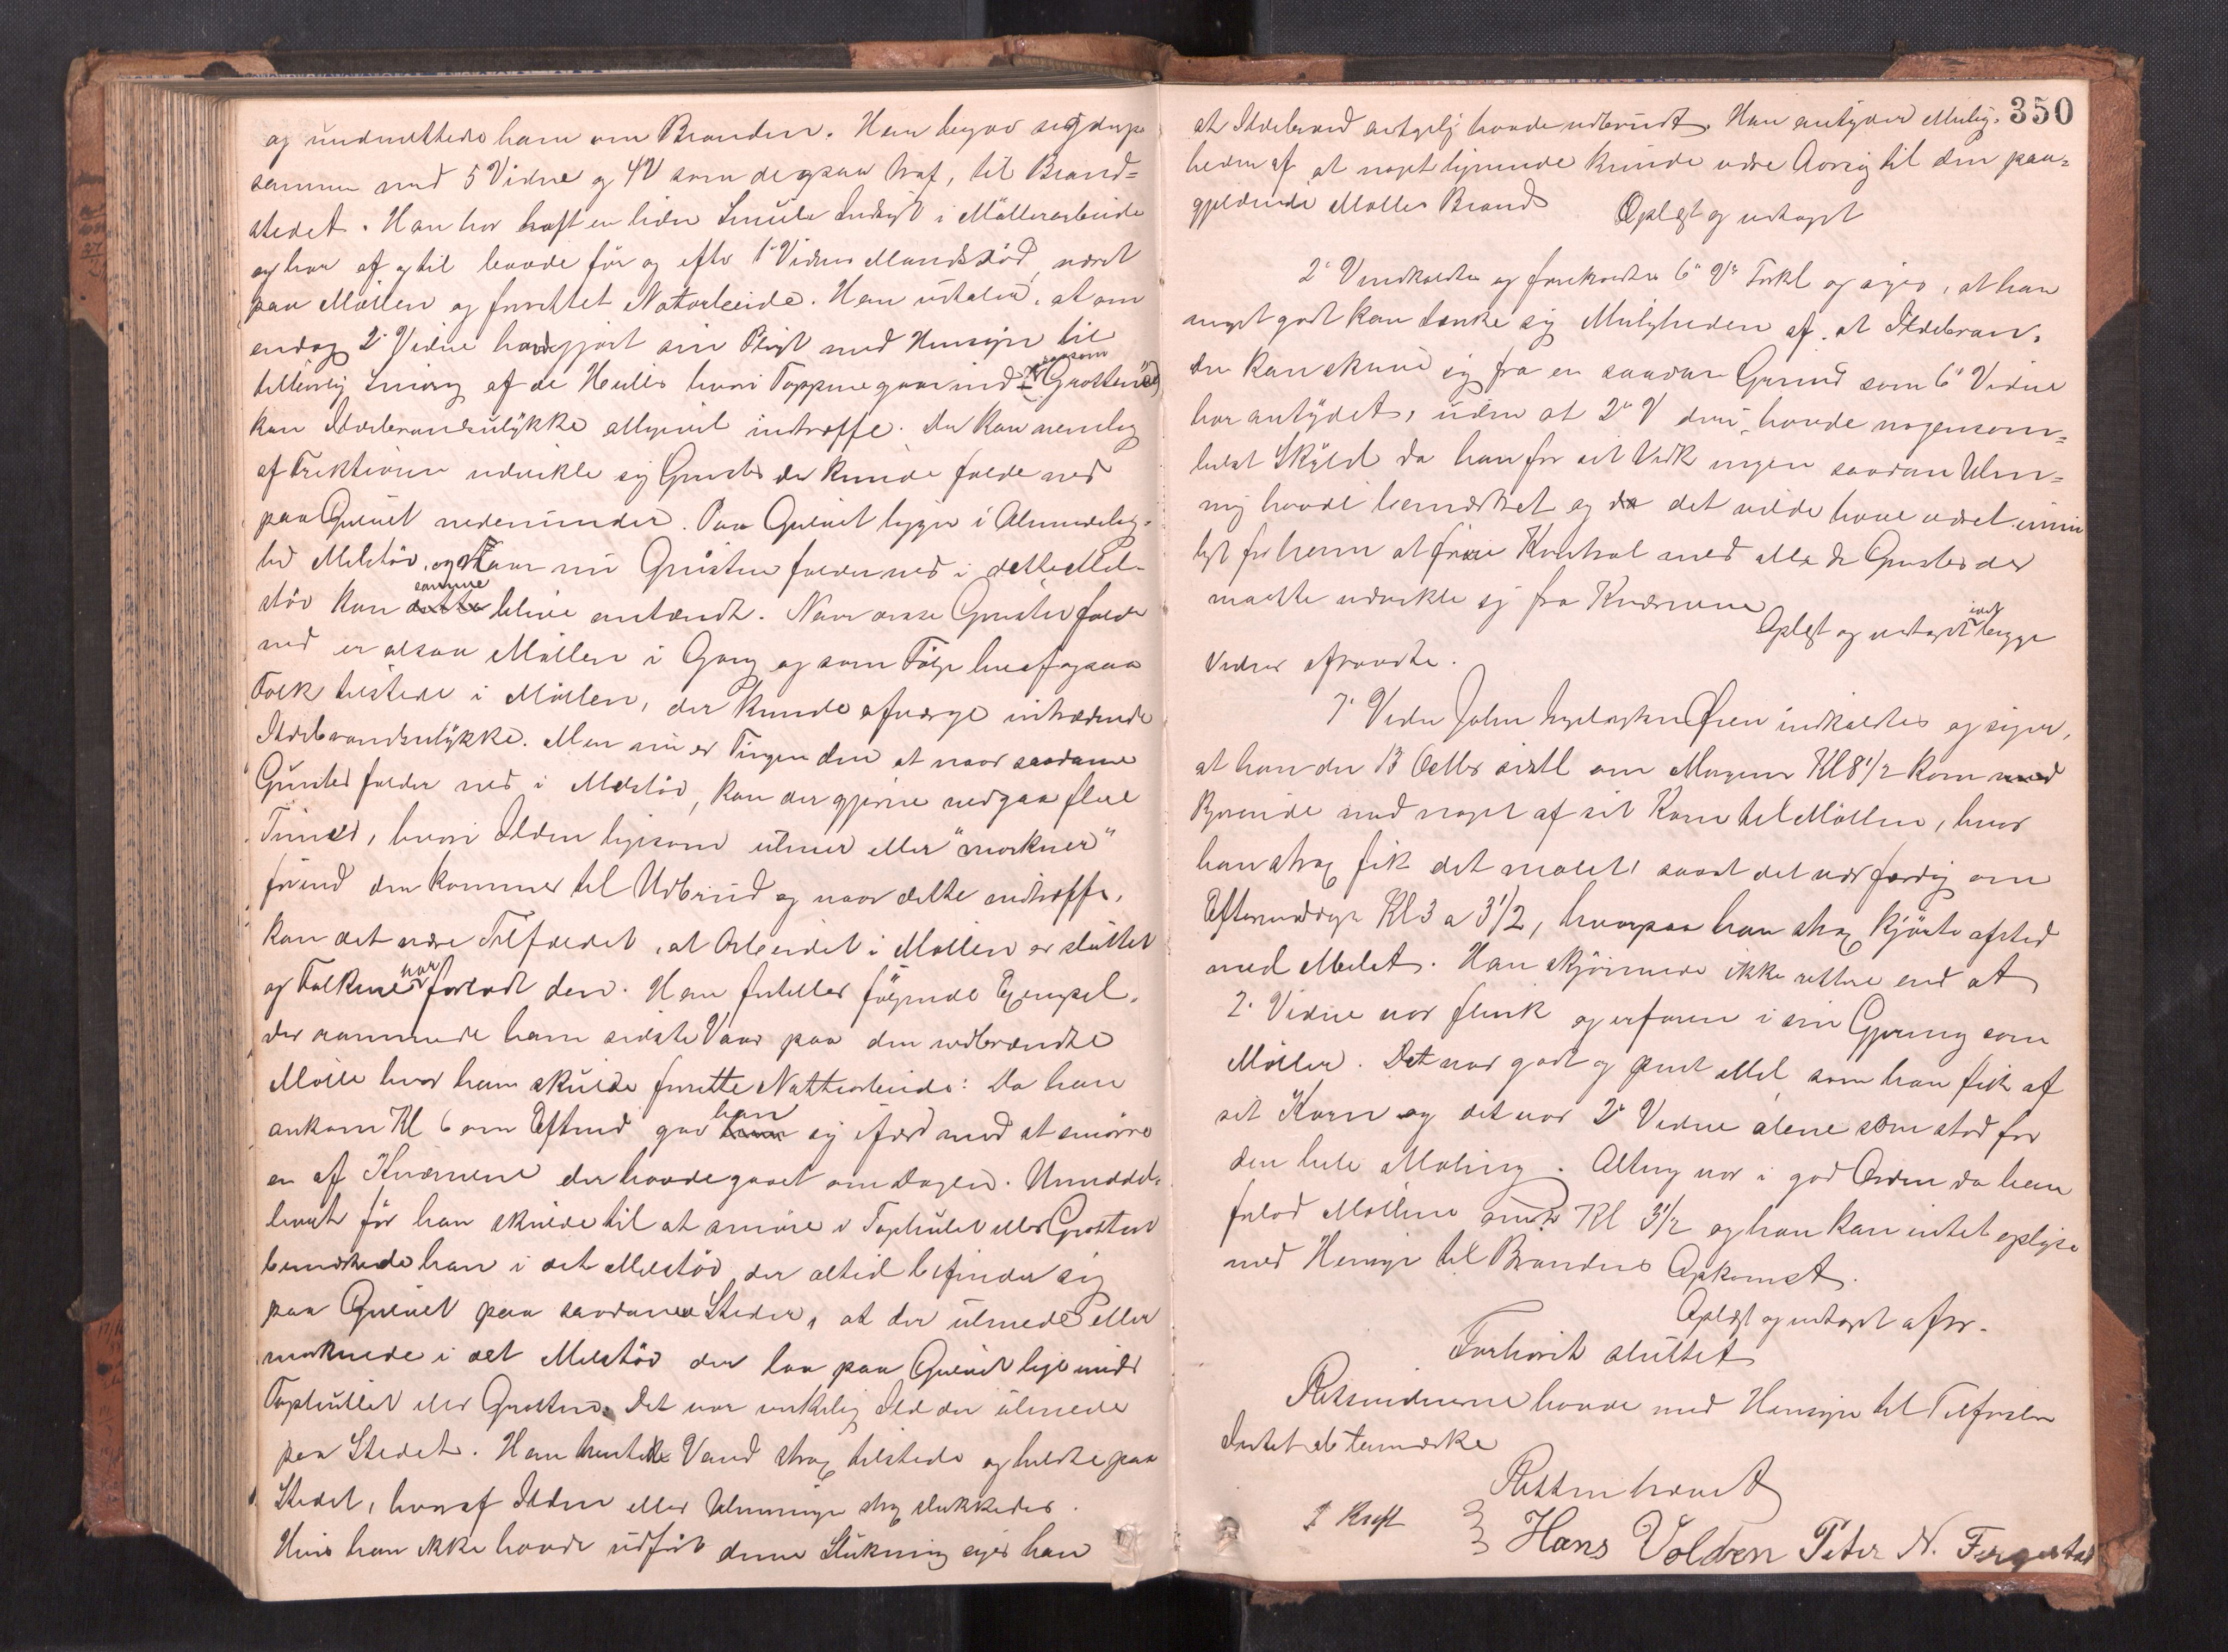 og underrettede ham om Branden. Han begav sig derpaa
sammen med 5 Vidne og 4 V som de ogsaa traf, til Brand=
stedet. Han har havt en liden Smule Indsigt i Møllerarbeide
og har af og til baade før og efter 1. Vidnes Mands Død, været
paa Møllen og forrettet Natarbeide. Han udtaler, at om
endog 2. Vidne havde gjort sin Pligt med Hensyn til
tilbørlig Smøring af de Huller hvori Tappene gaar ind (saasom "Grotten")
kan Ildebrandsulykke alligevel indtræffe. Der kan nemlig
af Friktionen udvikle sig Gnister der kunde falde ned
paa Gulvet nedenunder. Paa Gulvet ligger i Almindelig=
hed Melstøv, og naar nu Gnisten falder ned i dette Mel=
støv kan dette samme blive antændt. Naar disse Gnister falde
ned er altsaa Møllen i Gang og som Følge heraf ogsaa
Folk tilstede i Møllen, der kunde afværge indtrædende
Ildebrandsulykke. Men nu er Tingen den at naar saadanne
Gnister falder ned i Melstøv, kan der gjerne medgaa flere
Timer, hvori Ilden ligesom ulmer eller "morkner"
førend den kommer til Udbrud og naar dette indtræffer,
kan det være Tilfældet, at Arbeidet i Møllen er sluttet
og Folkene har forladt den. Han fortæller følgende Exempel,
der rammede ham sidste Vaar paa den nedbrændte
Mølle hvor han skulde forrette Nattearbeide: Da han
ankom Kl 6 om Efterm gav ham han sig ifærd med at smøre
en af Kværnene der havde gaaet om Dagen. Umiddel=
bart før han skulde til at smøre i Taphullet eller Grotten
bemærkede han i det Melstøv, der altid befinder sig
paa Gulvet paa saadanne Steder, at der ulmede eller
morknede i det Melstøv der laa paa Gulvet lige under
Taphullet eller Grotten. Det var virkelig Ild der ulmede
paa Stedet. Han hentede Vand strax tilstede og heldte paa
Stedet, hvoraf Ilden eller Ulmningen strax slukkedes.
Hvis han ikke havde udført denne Slukning siger han
350
at Ildebrand antagelig havde udbrudt. Han antyder Mulig=
heden af at noget lignende kunde være Aarsag til den paa=
gjeldende Mølles Brand Oplæst og vedtaget
2. V indkaldtes og foreholdtes 6. V's Forkl og siger, at han
meget godt kan tænke sig Muligheden af, at Ildebran=
den kan skrive sig fra en saadan Grund som 6. Vidne
har antydet, uden at 2. V deri havde nogensom=
helst Skyld da han for sit Vedk ingen saadan Ulm=
ning havde bemærket og da det vilde have været umu
ligt for ham at føre Kontrol med alle de Gnister der
maatte udvikle sig fra Kværnene
Oplæst og vedtaget idet begge
Vidner aftraadte.
7. Vidne John Øien indkaldtes og siger,
at han den 13 Octbr sidstl om Morgenen Kl 8 1/2 kom med
kjørende med noget af sit Korn til Møllen, hvor
han strax fik det malet, saaat det var færdig om
Eftermiddagen Kl 3 a 3 1/2, hvorpaa han strax kjørte afsted
med Melet. Han skjønnede ikke rettere end at
2. Vidne var flink og erfaren i sin Gjerning som
Møller. Det var godt og pent Mel som han fik af
sit Korn og det var 2. Vidne alene som stod for
den hele Maling. Alting var i god Orden da han
forlod Møllen Kl 3 1/2 og han kan intet oplyse
med Hensyn til Brandens Opkomst.
Oplæst og vedtaget aftr.
Forhøret sluttet
Retsvidnerne havde med Hensyn til Tilførselen
Intet at bemærke
Retten hævet
J Kraft
Hans Volden Peter N. Fergestad